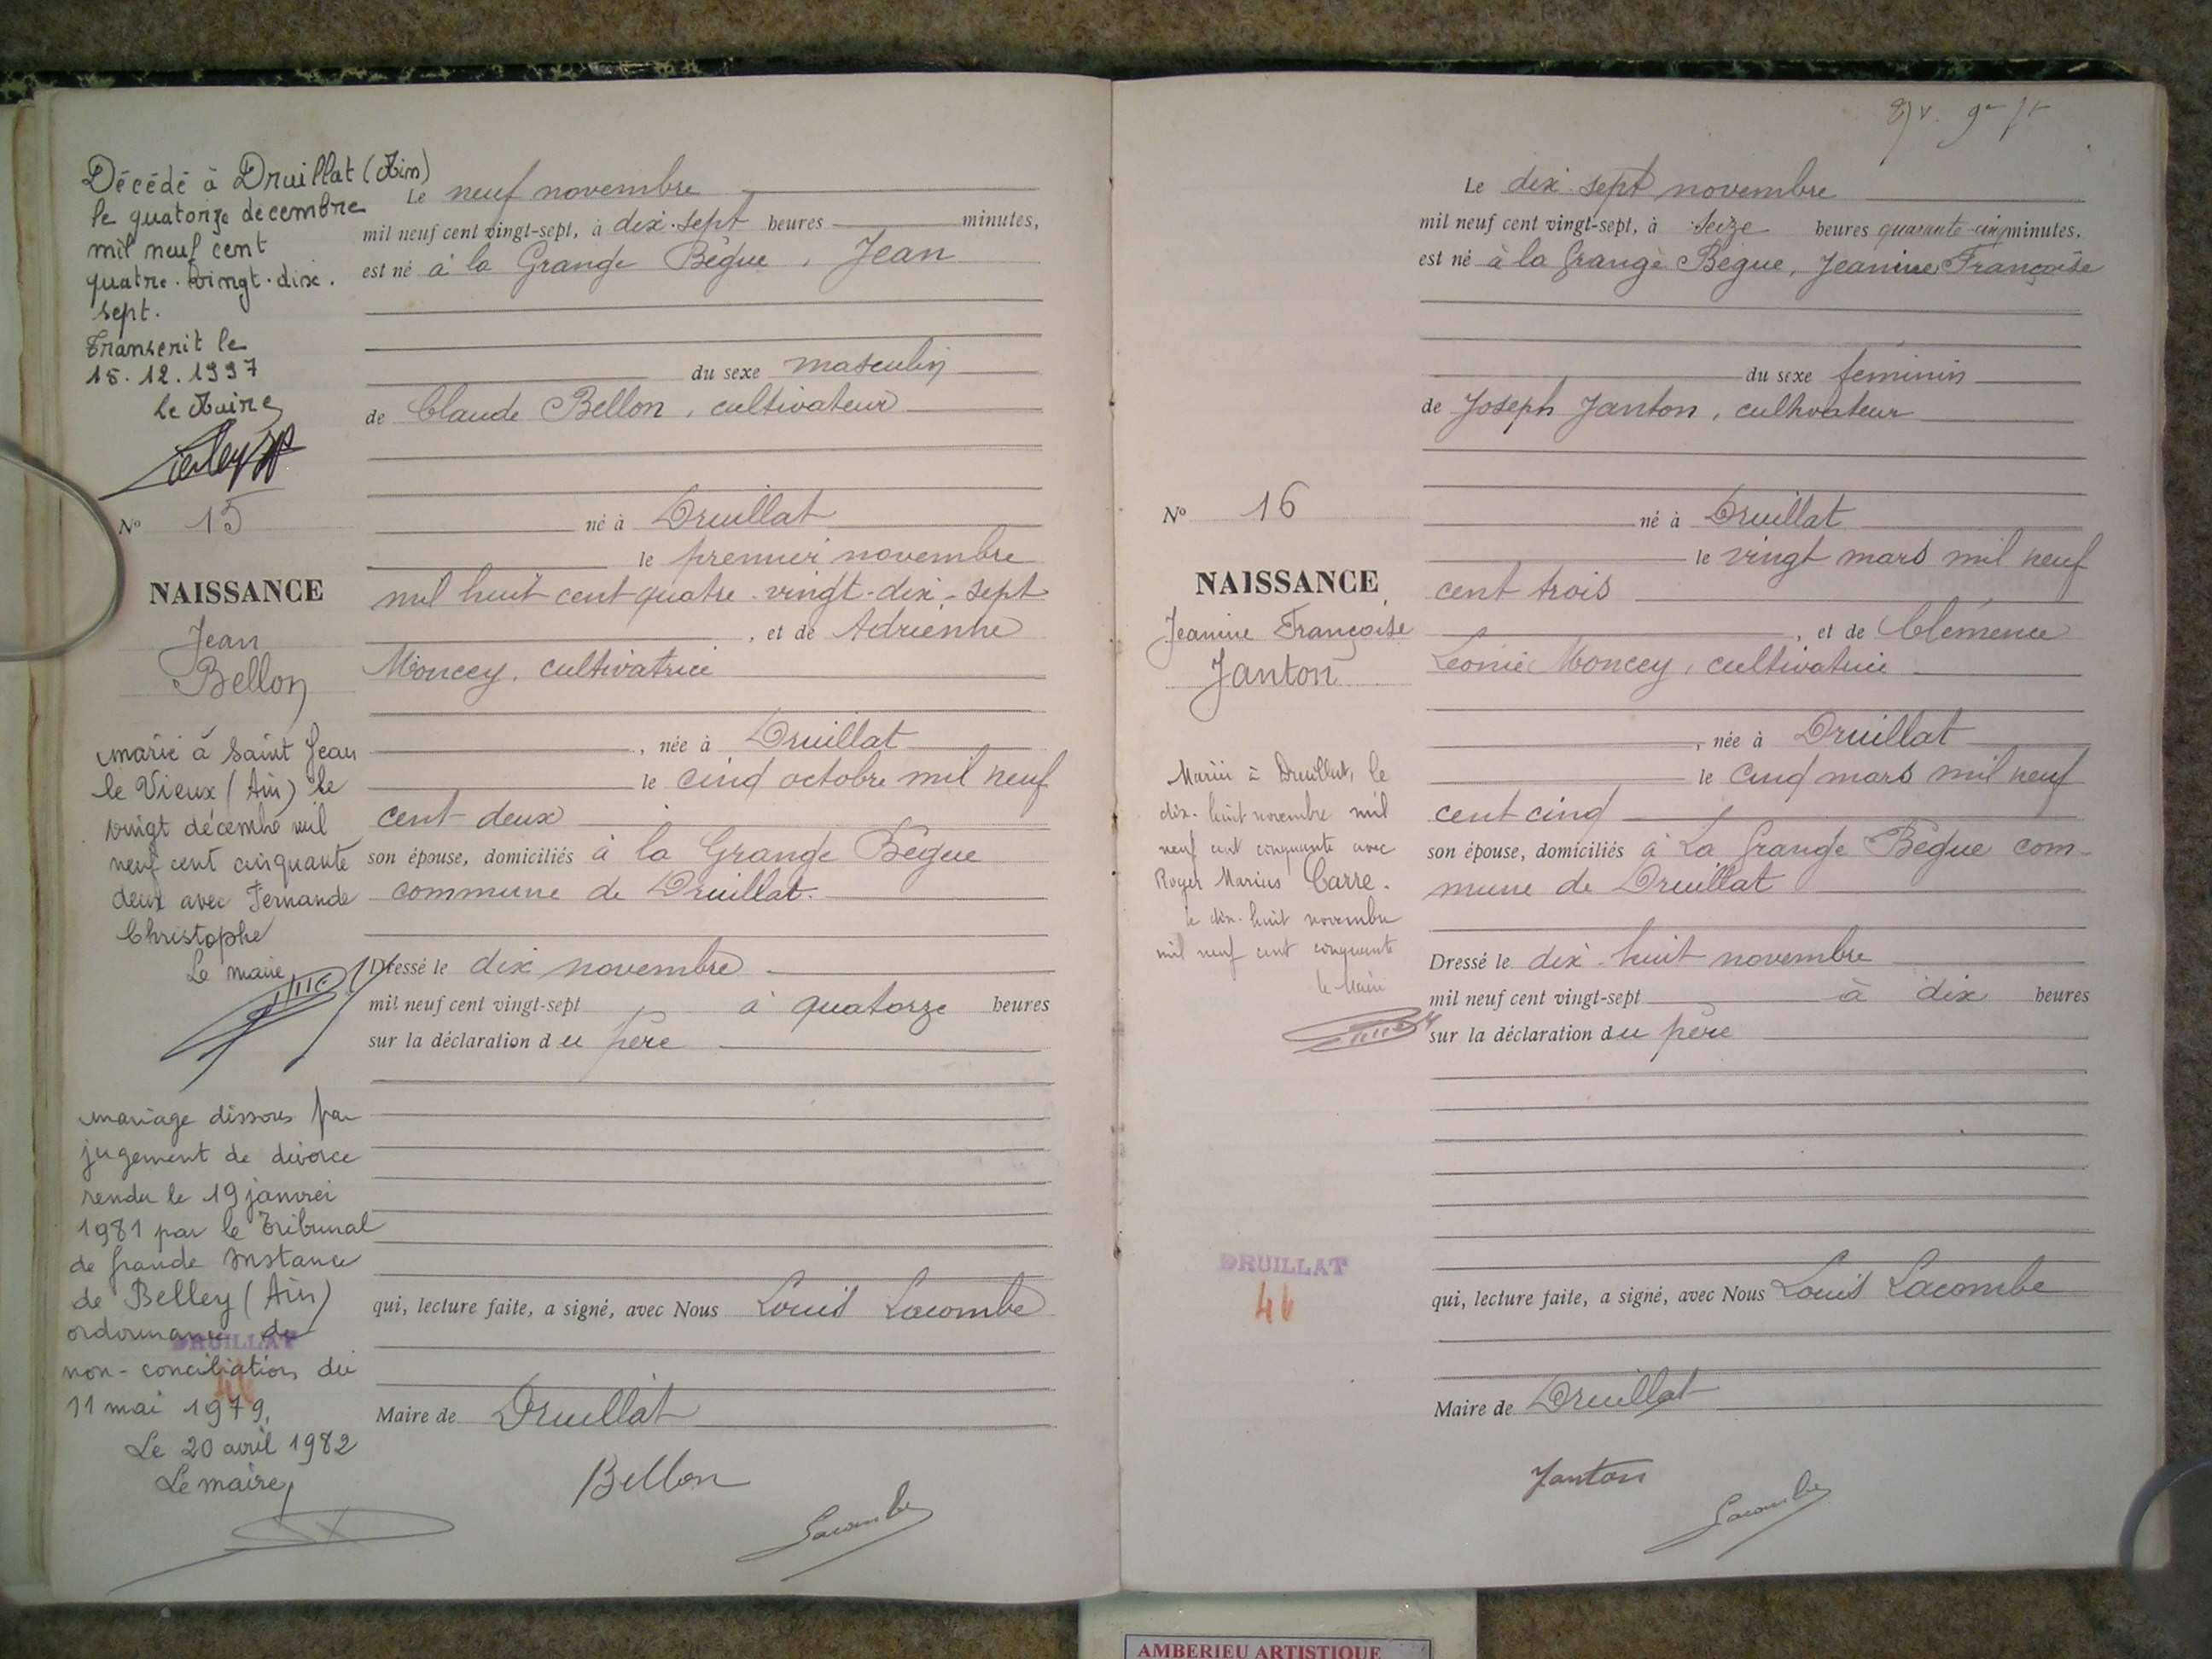 Décédé à Druillat (Ain)
le quatorze décembre
mil neuf cent
quatre-vingt-dix-
sept.
Transcrit le
15.12.1997
le Maire
N° 15
NAISSANCE
Jean
Bellon
marié à Saint Jean
le Vieux (Ain) le
vingt décembre mil
neuf cent cinquante
deux avec Fernande
Christophe
Le maire
mariage dissous par
jugement de divorce
rendu le 19 janvier
1981 par le Tribunal
de Grande Instance
de Belley (Ain)
ordonnance de
DRUILLAT
non-conciliation du
11 mai 1979.
Le 20 avril 1982
Le maire,
Le neuf novembre
mil neuf cent vingt-sept, à dix-sept heures minutes,
est né à la Grange Bègue, Jean
du sexe masculin
de Claude Bellon, cultivateur
né à Druillat
le premier novembre
mil huit cent quatre-vingt-dix-sept
, et de Adrienne
Moncey, cultivatrice
, née à Druillat
le cinq octobre mil neuf
cent deux
son épouse, domiciliés à la Grange Bègue
commune de Druillat.
Dressé le dix novembre
mil neuf cent vingt-sept à quatorze heures
sur la déclaration du père
qui, lecture faite, a signé, avec Nous Louis Lacombe
Maire de Druillat
Bellon
Lacombe
N° 16
NAISSANCE
Jeanine Françoise
Janton
Mariée à Druillat, le
dix-huit novembre mil
neuf cent cinquante avec
Roger Marius Carre.
le dix-huit novembre
mil neuf cent cinquante
le Maire
DRUILLAT
46
Le dix-sept novembre
mil neuf cent vingt-sept, à seize heures quarante-cinq minutes,
est né à la Grange Bègue, Jeanine Françoise
du sexe féminin
de Joseph Janton, cultivateur
né à Druillat
le vingt mars mil neuf
cent trois
, et de Clémence
Léonie Moncey, cultivatrice
, née à Druillat
le cinq mars mil neuf
cent cinq
son épouse, domiciliés à La Grange Bègue com-
mune de Druillat
Dressé le dix-huit novembre
mil neuf cent vingt-sept à dix heures
sur la déclaration du père
qui, lecture faite, a signé, avec Nous Louis Lacombe
Maire de Druillat
Janton
Lacombe
AMBERIEU ARTISTIQUE